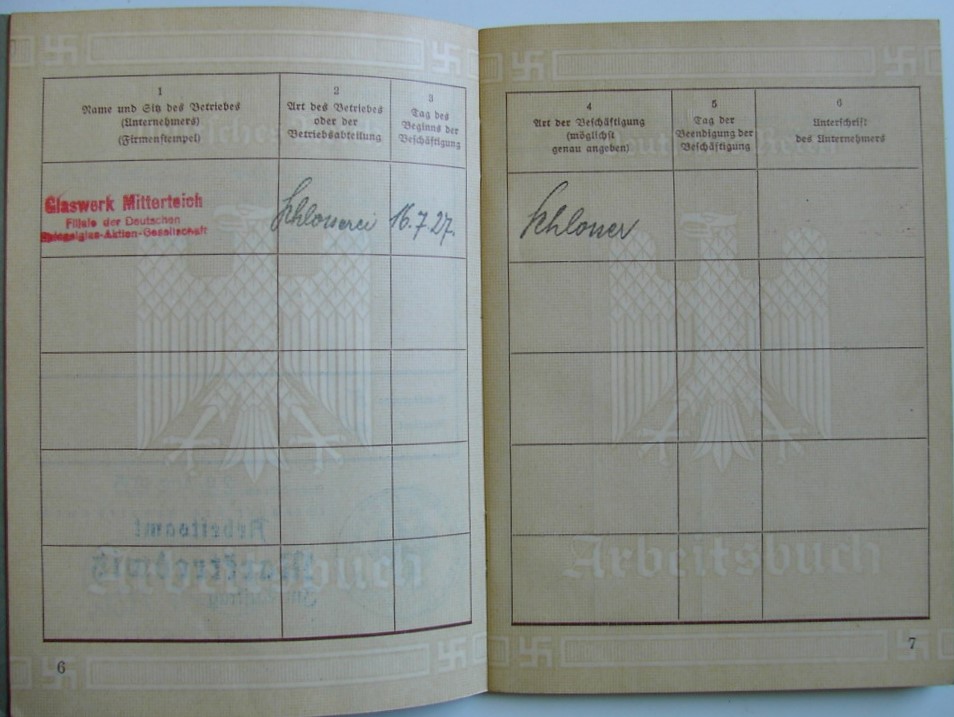 1
Name und Sitz des Betriebes
(Unternehmers)
(Firmenstempel)
2
Art des Betriebes
oder der
Betriebsabteilung
3
Tag des
Beginns der
Beschäftigung
Glaswerk Mitterteich
Filiale der Deutschen
Spiegelglas-Aktien-Gesellschaft
Schlosserei
16.7.27.
Arbeitsamt
Marktredwitz
Im Auftrag
6
4
Art der Beschäftigung
(möglichst
genau angeben)
5
Tag der
Beendigung der
Beschäftigung
6
Unterschrift
des Unternehmers
Schlosser
Deutsches Reich
Arbeitsbuch
7